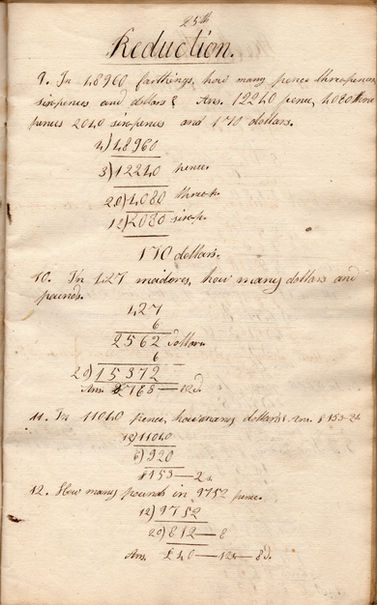 25th
Reduction.
9. In 48960 farthings, how many pence three pences
sixpences and dollars? Ans. 12240 pence, 4080 three
pences 2040 sixpences and 170 dollars.
4)48960
3)12240 pence
20)4080 three p.
12)2080 six p.
170 dollars.
10. In 427 moidores, how many dollars and
pounds.
427
6
2562 dollars
6
20)15372
Ans. £768—12s.
11. In 11040 pence, how many dollars? Ans. $153—2s
12)11040
6)920
$153—2s
12. How many pounds in 9752 pence.
12)9752
20)812—8
Ans. £40—12s—8d.